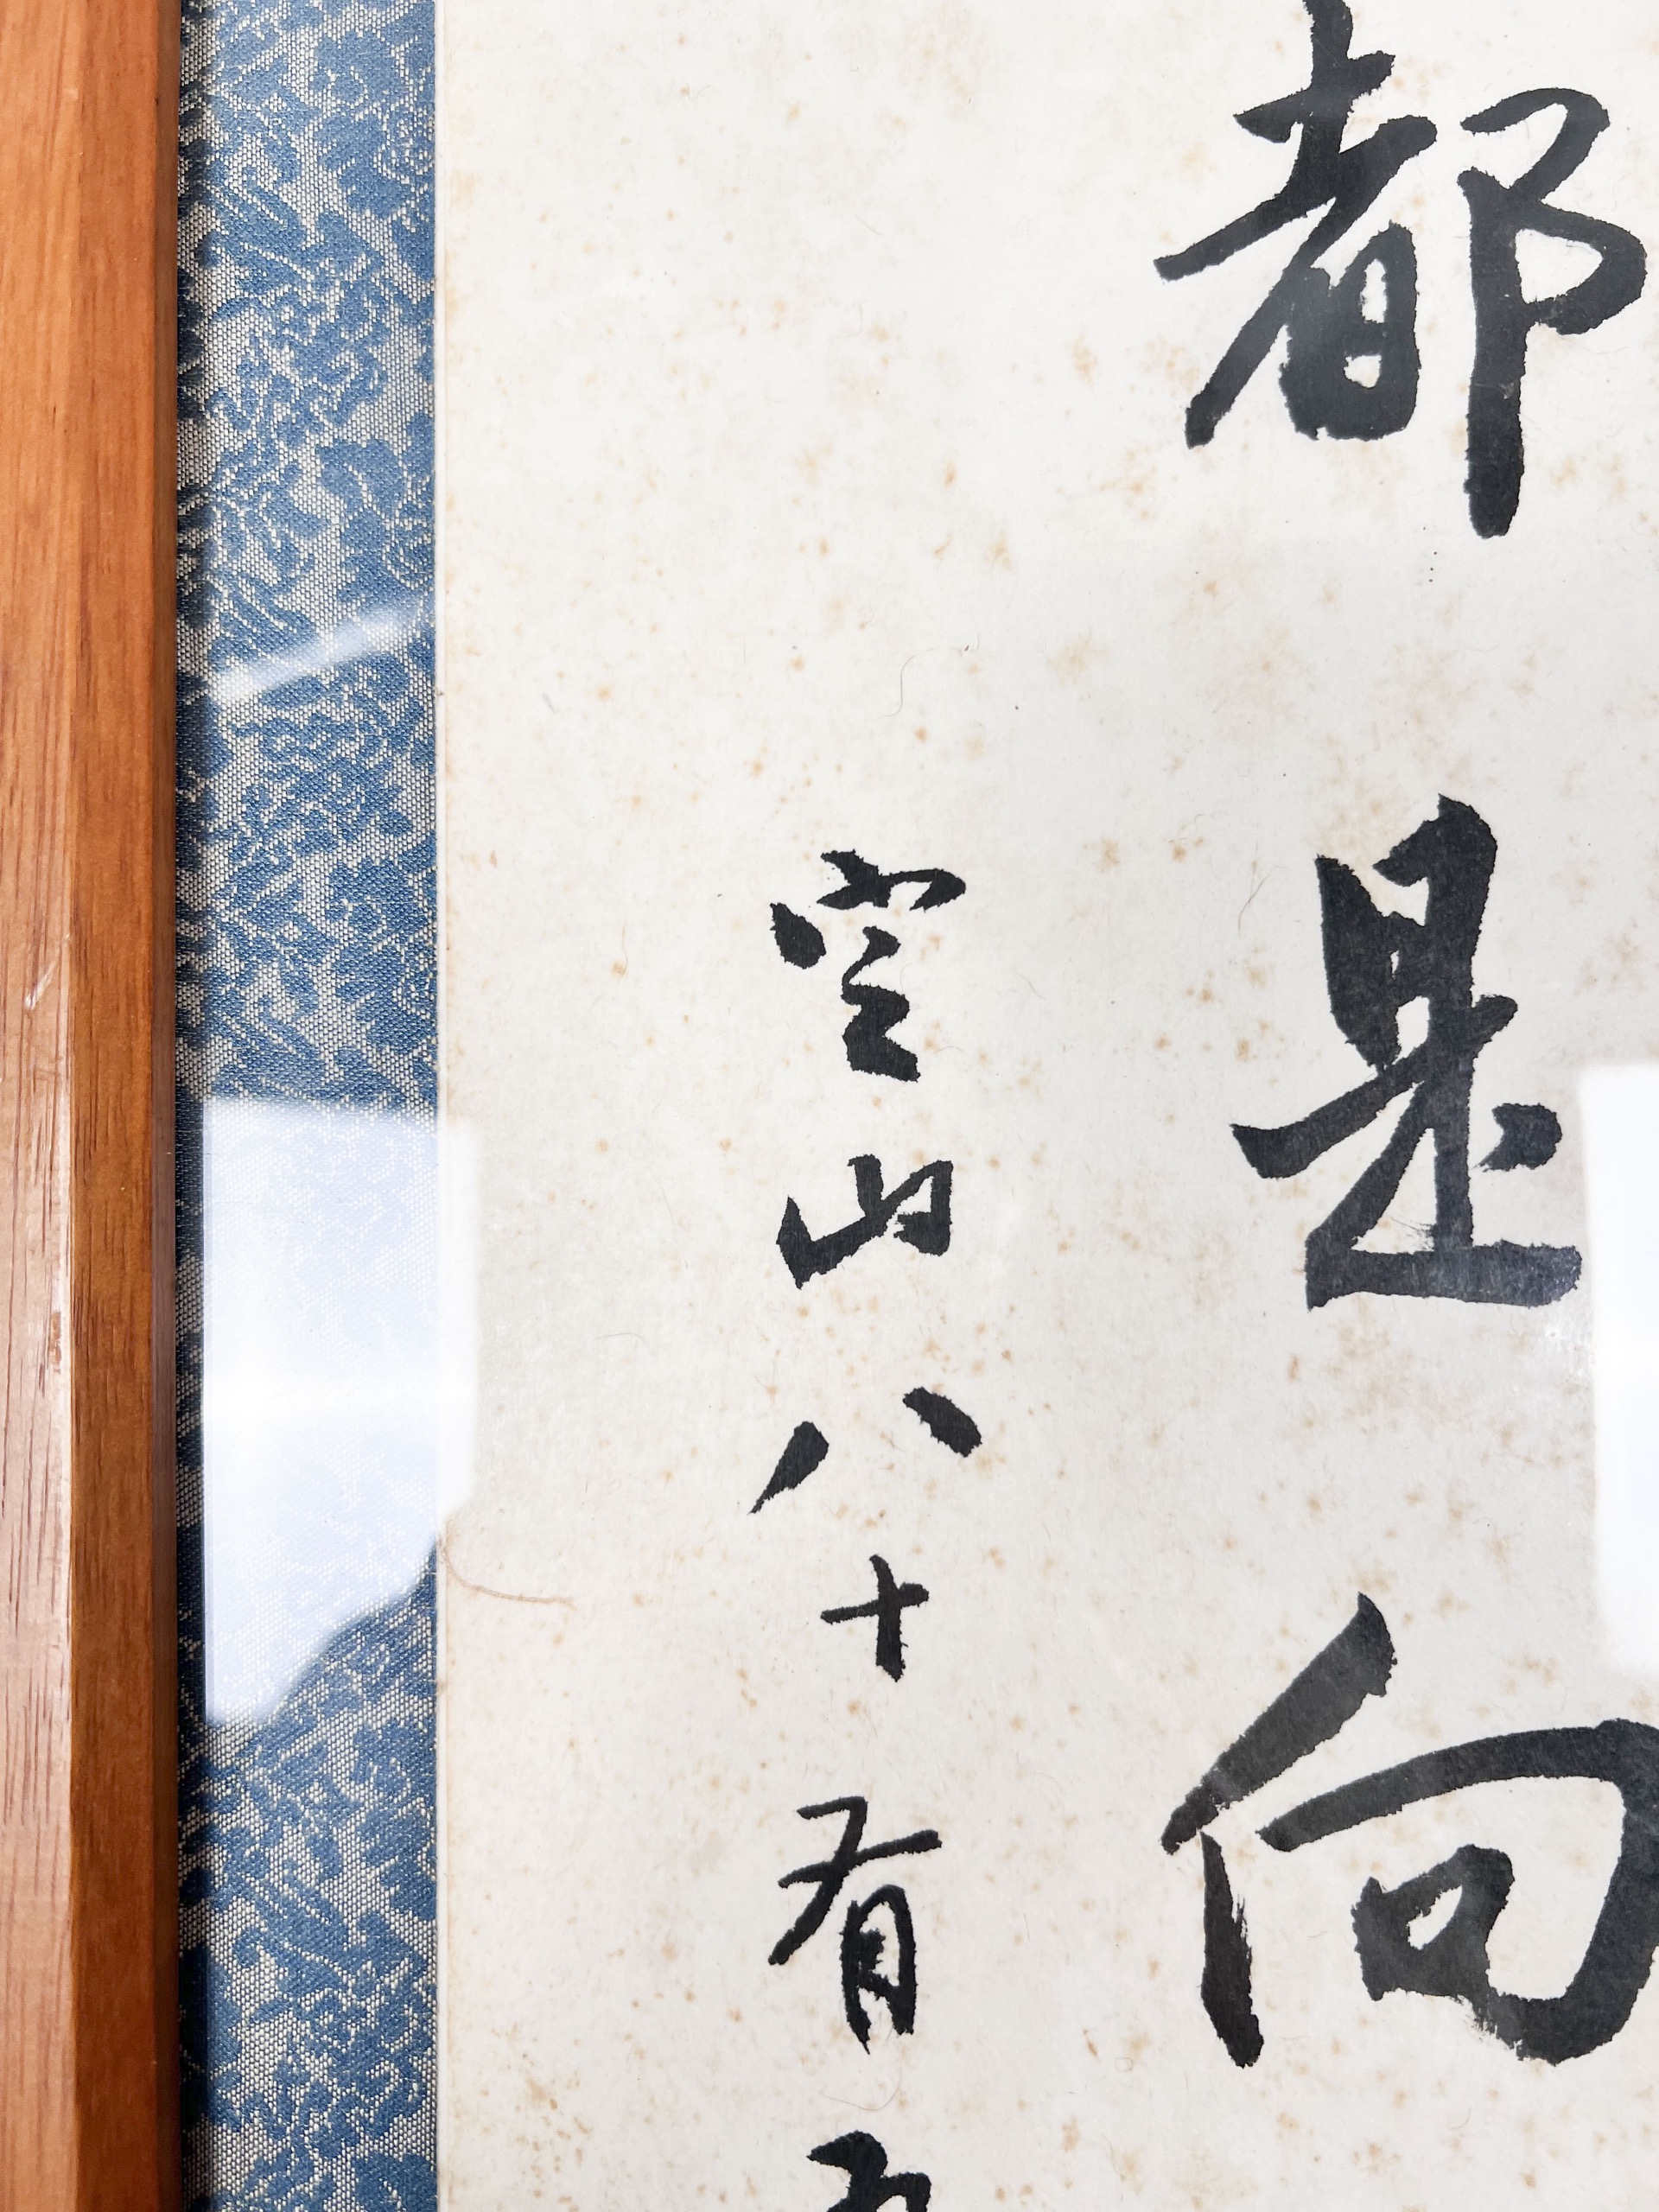 都是向
空山八十有